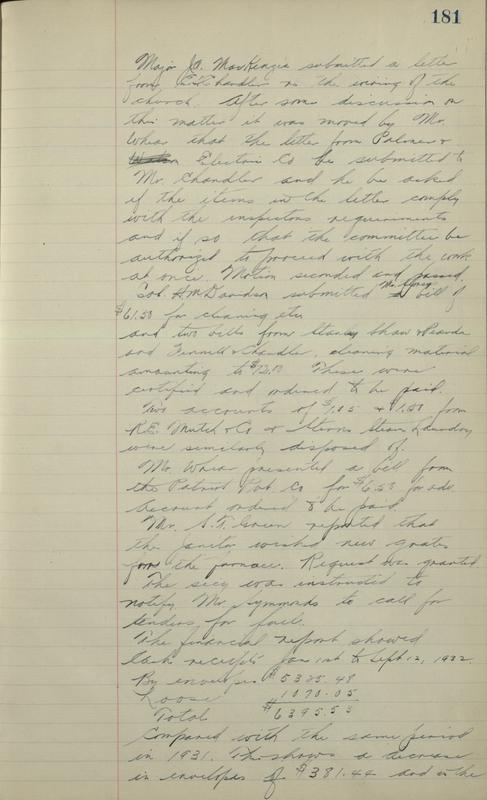 181
Major J.A. MacKenzie submitted a letter
from Chandler re the wiring of the
church. After some discussion on
this matter it was moved by Mr.
Whear that the letter from Palmer &
Electric Co be submitted to
Mr. Chandler and he be asked
if the items in the letter comply
with the inspectors requirements
and if so that the committee be
authorized to proceed with the work
at once. Motion seconded and passed.
Col. H.M. Davison submitted bill of
$61.50 for cleaning etc
and two bills from Stanley Shaw & Peardon
and Fennell & Chandler, cleaning material
amounting to These were
certified and ordered to be paid.
Two accounts of & from
R.E. Mutch & Co & Steam Laundry
were similarly disposed of.
Mr. Whear presented a bill from
the Patriot Pub. Co for for adv.
Account ordered to be paid.
Mr. Green reported that
the janitor wished new grates
for the furnace. Request was granted
The secy was instructed to
notify Mr. Symmonds to call for
tenders for fuel.
The financial report showed
Cash receipts Jan 1st to Sept. 12, 1932
By envelopes $5325.48
Loose 1070.05
Total $6395.53
Compared with the same period
in 1931. This shows a decrease
in envelopes of $381.44 and in the